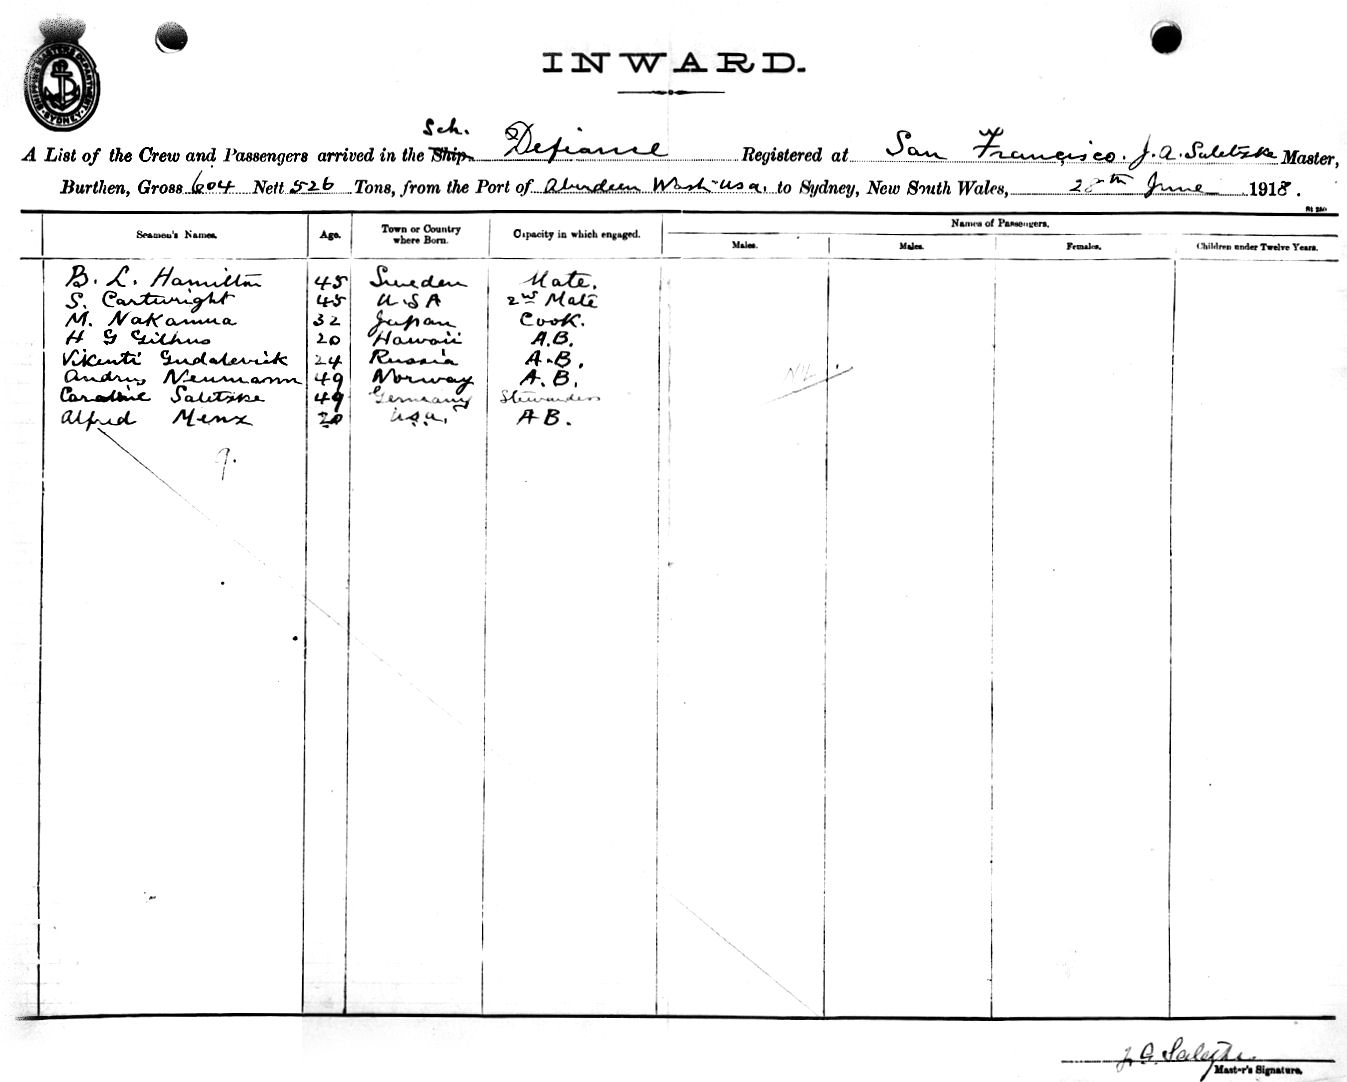 SHIPPING MASTER'S DEPARTMENT SYDNEY
INWARD.
Sch.
A List of the Crew and Passengers arrived in the Ship Defiance Registered at San Francisco. J. A. Saletzke Master,
Burthen, Gross 604 Nett 526 Tons, from the Port of Aberdeen Wash USA. to Sydney, New South Wales, 28th June 1918.
Names of Passengers.
Seamen's Names. Age. Town or Country where Born. Capacity in which engaged. Males. Males. Females. Children under Twelve Years.
B. L. Hamilton 45 Sweden Mate.
S. Cartwright 45 U S A 2nd Mate
M. Nakamua 32 Japan Cook.
H G Gilhus 20 Hawaii A.B.
Vikenti Gudalevick 24 Russia A.B.
Andris Neumann 49 Norway A.B. Nil.
Caroline Saletzke 49 Germany Stewardess
Alfred Menz 20 U.S.A. AB.
9.
J. A. Saletzke
Master's Signature.